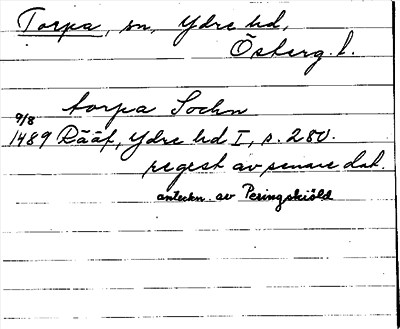 Torpa, sn, Ydre hd,
Österg. l.
torpa Sochn
9/8
1489 Rääf, Ydre hd I, s. 280.
regest av senare dat.
anteckn. av Peringskiöld